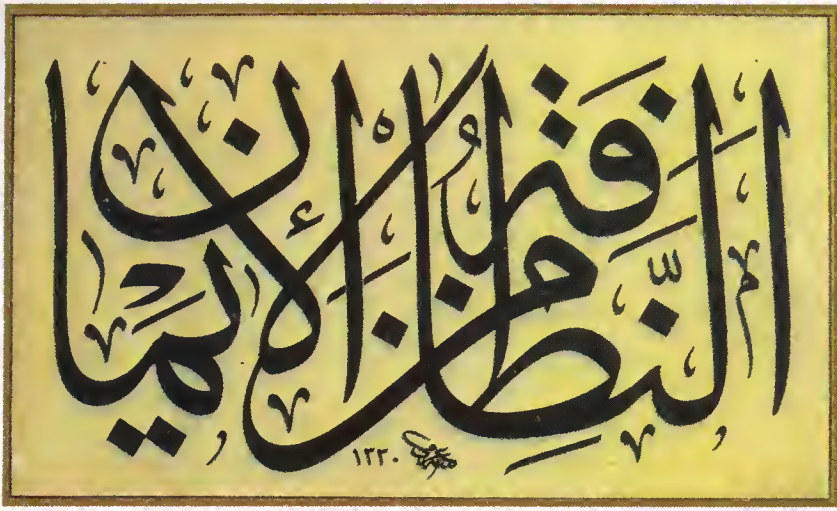 النِّظَافَةُ مِنَ الْإِيمَانِ
١٣٢٠